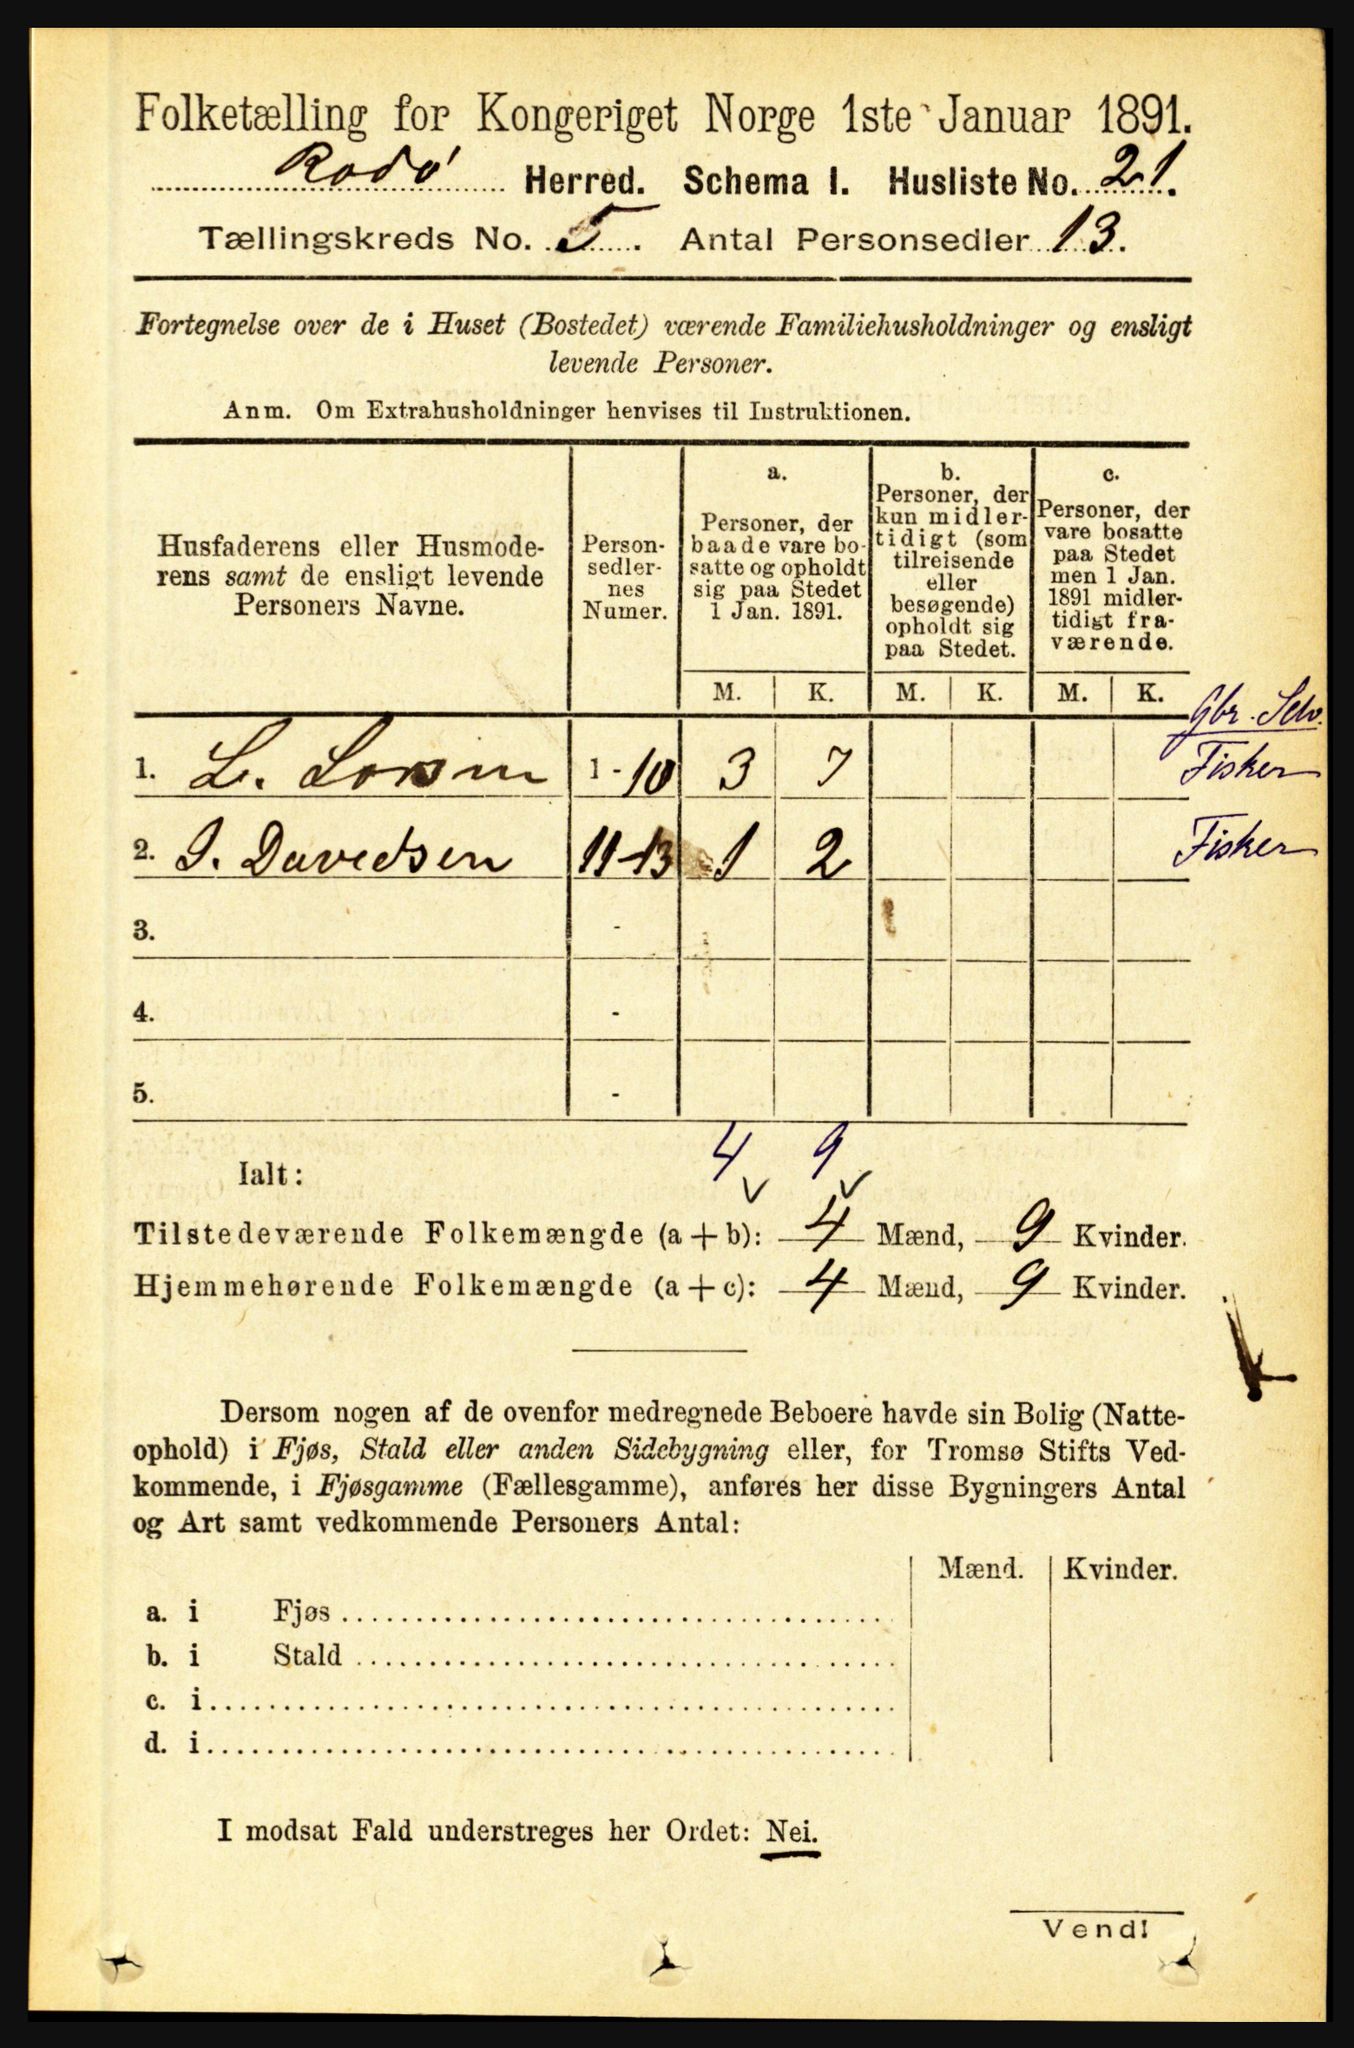 Folketælling for Kongeriget Norge 1ste Januar 1891.
Rodø Herred. Schema I. Husliste No. 21.
Tællingskreds No. 5. Antal Personsedler 13.
Fortegnelse over de i Huset (Bostedet) værende Familiehusholdninger og ensligt
levende Personer.
Anm. Om Extrahusholdninger henvises til Instruktionen.
Husfaderens eller Husmode-
rens samt de ensligt levende
Personers Navne.
Person-
sedler-
nes
Numer.
a.
Personer, der
baade vare bo-
satte og opholdt
sig paa Stedet
1 Jan. 1891.
b.
Personer, der
kun midler-
tidigt (som
tilreisende
eller
besøgende)
opholdt sig
paa Stedet.
c.
Personer, der
vare bosatte
paa Stedet
men 1 Jan.
1891 midler-
tidigt fra-
værende.
M. K. M. K. M. K.
Gbr. Selv.
1. L. 1-10 3 7 Fisker
2. J. Davidsen 11-13 1 2 Fisker
3. -
4. -
5. -
4 9
Ialt:
Tilstedeværende Folkemængde (a+b): 4 Mænd, 9 Kvinder.
Hjemmehørende Folkemængde (a+c): 4 Mænd, 9 Kvinder.
Dersom nogen af de ovenfor medregnede Beboere havde sin Bolig (Natte-
ophold) i Fjøs, Stald eller anden Sidebygning eller, for Tromsø Stifts Ved-
kommende, i Fjøsgamme (Fællesgamme), anføres her disse Bygningers Antal
og Art samt vedkommende Personers Antal:
Mænd. Kvinder.
a. i Fjøs
b. i Stald
c. i
d. i
I modsat Fald understreges her Ordet: Nei.
Vend!